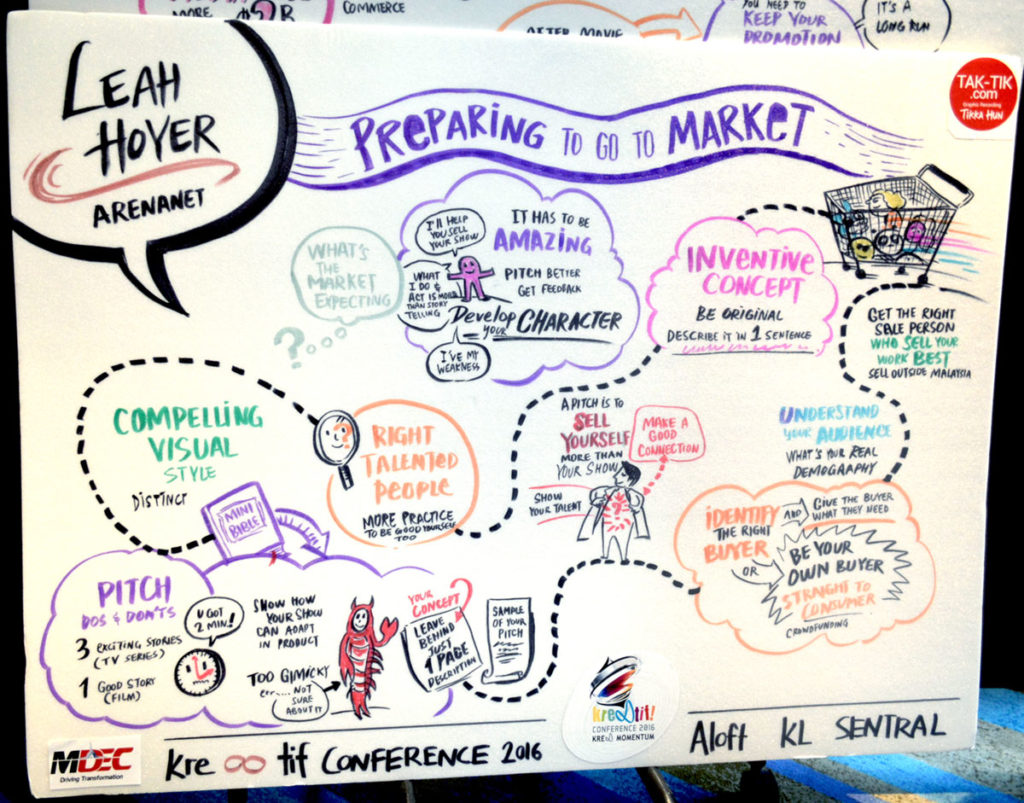 COMMERCE
AFTER MOVIE
YOU NEED TO
KEEP YOUR
PROMOTION
IT'S A
LONG RUN
LEAH
HOYER
ARENANET
PREPARING TO GO TO MARKET
TAK-TIK
.com
Graphic Recording
TIKKA HUN
WHAT'S
THE
MARKET
EXPECTING
?
I'LL HELP
YOU SELL
YOUR SHOW
IT HAS TO BE
AMAZING
WHAT
I DO &
ACT IS MORE
THAN STORY
TELLING
PITCH BETTER
GET FEEDBACK
Develop YOUR CHARACTER
I'VE MY
WEAKNESS
INVENTIVE
CONCEPT
BE ORIGINAL
DESCRIBE IT IN 1 SENTENCE
GET THE RIGHT
SALE PERSON
WHO SELL YOUR
WORK BEST
SELL OUTSIDE MALAYSIA
COMPELLING
VISUAL
STYLE
DISTINCT
RIGHT
TALENTED
PEOPLE
MORE PRACTICE
TO BE GOOD YOURSELF
TOO
A PITCH IS TO
SELL
YOURSELF
MORE THAN
YOUR SHOW
MAKE A
GOOD
CONNECTION
SHOW
YOUR TALENT
UNDERSTAND
YOUR AUDIENCE
WHAT'S YOUR REAL
DEMOGRAPHY
IDENTIFY
THE RIGHT
BUYER
AND
GIVE THE BUYER
WHAT THEY NEED
OR
BE YOUR
OWN BUYER
STRAIGHT TO
CONSUMER
CROWDFUNDING
MINI
BIBLE
PITCH
DOS & DON'TS
3 EXCITING STORIES
(TV SERIES)
1 GOOD STORY
(FILM)
U GOT
2 MIN.!
SHOW HOW
YOUR SHOW
CAN ADAPT
IN PRODUCT
TOO GIMICKY
err.... NOT
SURE
ABOUT IT
YOUR
CONCEPT
LEAVE
BEHIND
JUST
1 PAGE
DESCRIPTION
SAMPLE
OF YOUR
PITCH
MDEC
Driving Transformation
Kre ∞ tif CONFERENCE 2016
kreatif!
CONFERENCE 2016
MOMENTUM
Aloft KL SENTRAL